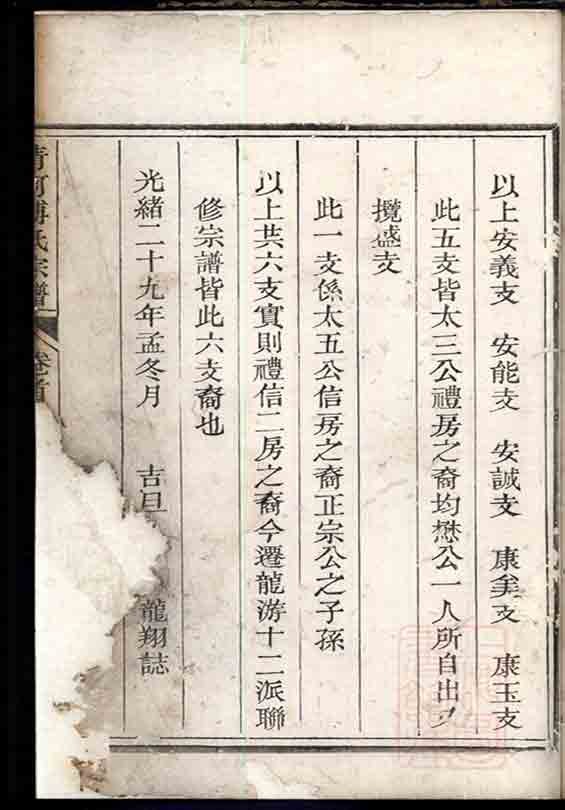 以上安義支 安能支 安誠支 康美支 康玉支
此五支皆太三公禮房之裔均懋公一人所自出
攬盛支
此一支係太五公信房之裔正宗公之子孫
以上共六支實則禮信二房之裔今遷龍游十二派聯
修宗譜皆此六支裔也
光緒二十九年孟冬月 吉旦 龍翔誌
氏宗譜 卷首